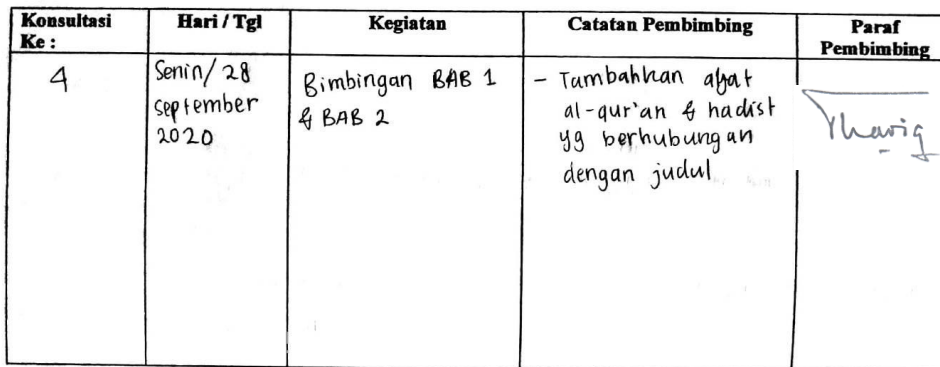 Konsultasi Ke :
Hari / Tgl
Kegiatan
Catatan Pembimbing
Paraf Pembimbing
4
Senin/ 28
september
2020
Bimbingan BAB 1
& BAB 2
- Tambahkan ayat
al-qur'an & hadist
yg berhubungan
dengan judul